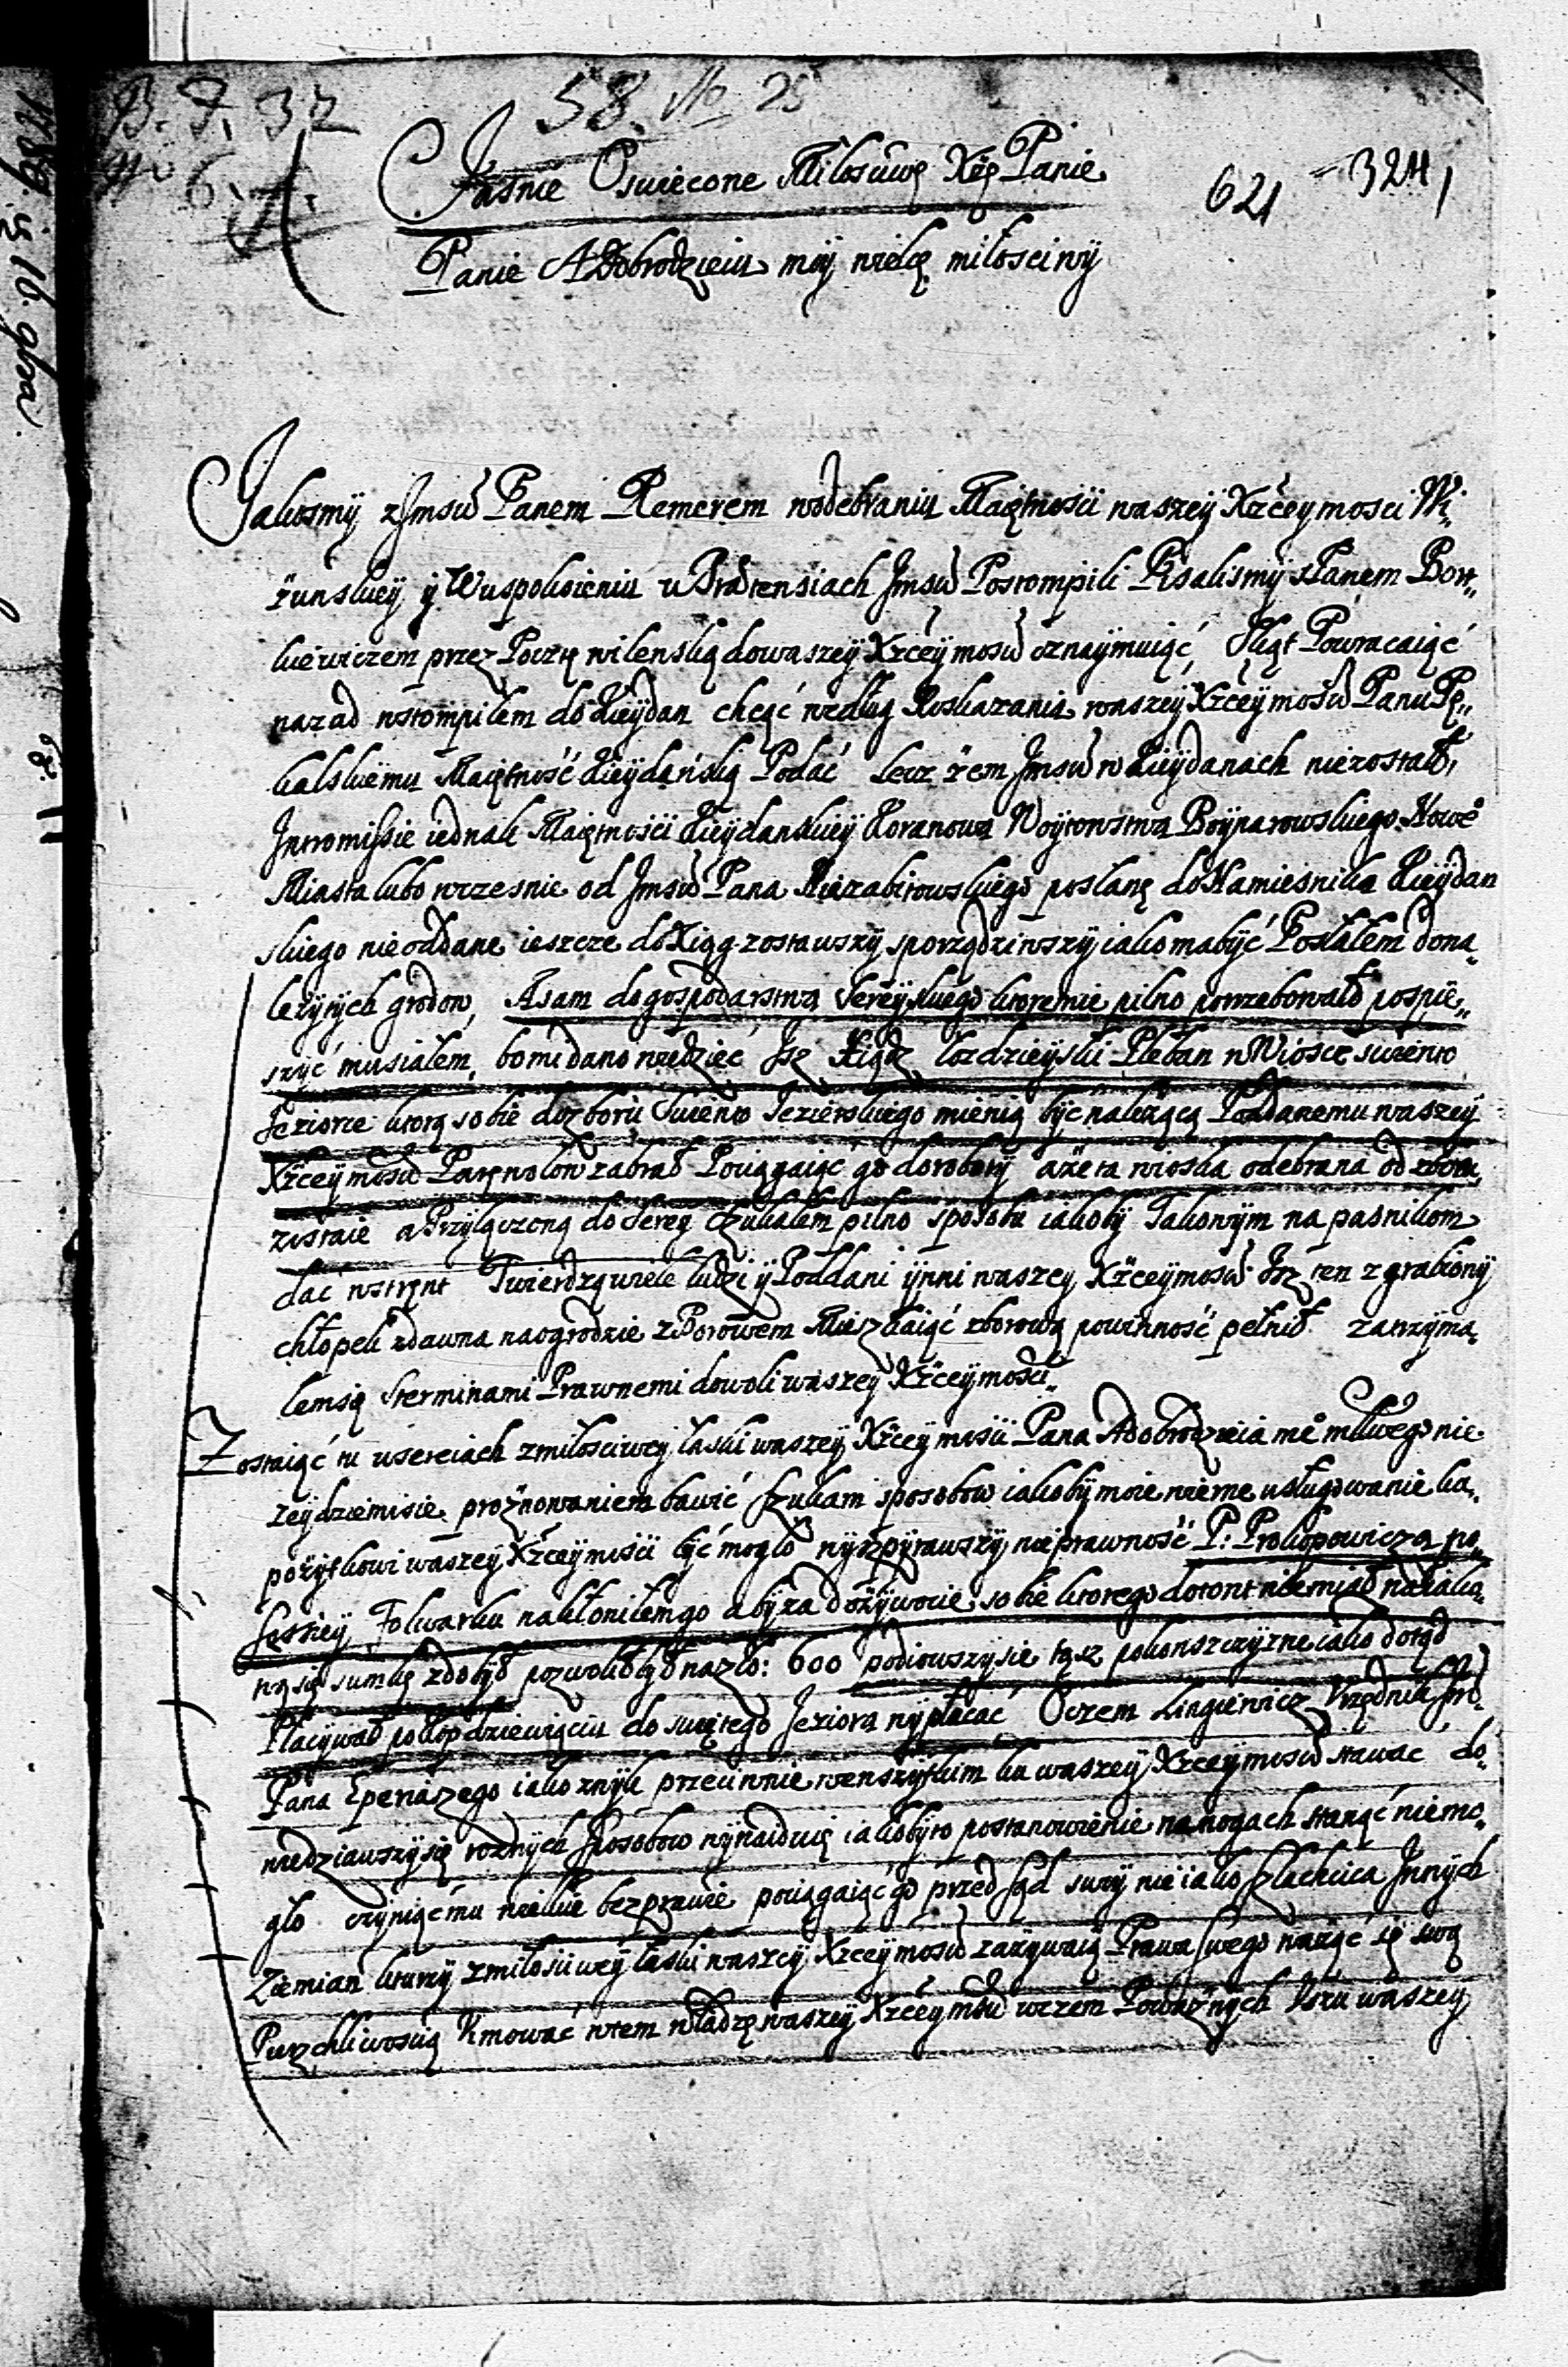 B. F. 32
58. No 25
No 6.
621
324
Jaśnie Oswiecone Miłosciwę Xżę Panie
Panie A Dobrodzieiu moy wielcę miłosciwy
Jakosmÿ z Jmscią Panem Remerem w odebraniu Maiętnosci waszeÿ Xżceÿ mosci Wi-
żunskieÿ ÿ W uspokoieniu u Praetensiach Jmsci Postompili Pisalismÿ s Panem Bor-
kiewiczem przez Pocztę wilenską do waszeÿ Xżceÿ mosci oznaÿmuiąć, Skąt Powracaiąć
nazad wstompiłem do Kieÿdan chcąć według Roskazania waszeÿ Xżceÿ mosci Panu Pę-
kalskiemu Maiętność Kieÿdańską Podać Lecz żem Jmsci w Kieÿdanach nie zostałł,
Intromissie iednak Maiętności Kieÿdanskieÿ Woÿtowstwa Boÿnarowskiego Nowe
Miasta lubo wczesnie od Jmsci Pana Niezabitowskiego posłanę do Namiesnika Kieÿdan
skiego nie oddane ieszcze do Xiąg zostawszÿ sporządziwszÿ iako ma bÿć Posłałem do na-
leżÿtÿch grodow, A sam do gospodarstwa Sereÿskiego ktore mie pilno potrzebowałł pospie-
szÿć musiałem, bo mi dano wiedzieć Jsz Xiądz Łozdzieÿski Pleban w Wiosce swiento
Jeziorce ktorą sobie do zboru Swiento Jezierskiego mienią bÿć należącą Poddanemu waszeÿ
Xżceÿ mosci zabrał Pociągaiąć go do robotÿ aże ta wioska odebrana od zboru
zostaie a Przÿłączoną do Sereÿ Szukałem pilno sposobu iakobÿ Takowÿm napasnikom
dać wstręnt Twierdzą wiele ludzi ÿ Poddani ÿnni waszeÿ Xżceÿ mosci Jsz ten zgrabionÿ
chłopek zdawna na ogrodzie z Borowem Mieszkaiąć zborową powinność pełnił. zatrzÿma-
łem się s terminami Prawnemi do woli waszeÿ Xżceÿ mosci.
Zostaiąć tu w Sereiach z miłosciweÿ łaski waszeÿ Xżceÿ mosci Pana A dobrodzieia me mlwego nie
zeÿdzie mi sie proznowaniem bawić szukam sposobow iakobÿ moie wierne usługowanie ku
pożÿtkowi waszeÿ Xżceÿ mosci bÿć mogło wÿszpÿrawszÿ nieprawność P: Prokopowicza po-
sessieÿ Folwarku nakłoniłem go abÿ za dożÿwocie sobie ktorego dotont nie miał na iako-
wą się sumkę zdobÿł pozwolił bÿł na zło: 600 podiowszÿ sie tęsz pokonszczÿzne iako dotąd
Płacÿwał po kop dziewięciu do swiętego Jeziora wÿpłacać O czem Lingiewicz Urzędnik Jmci
Pana Epenaszego iako znÿk przeciwnie wewszÿtkim ku waszeÿ Xżceÿ mosci stawać do-
wiedziawszÿ się roznÿch Sposobow wÿnaiduię iakobÿ to postanowienie na nogach stanąć nie mo-
gło czÿniąć mu wielkie bezprawie pociągaiąć go przed sąd swoÿ nie iako szlachcica Jnnÿch
Ziemian ktorzÿ z miłosciweÿ łaski waszeÿ Xżceÿ mosci zażÿwaią Prawa swego ważąć się swą
Porzchliwoscią Umować w tem władzę waszeÿ Xżceÿ mosci w czem Poważnÿch waszeÿ